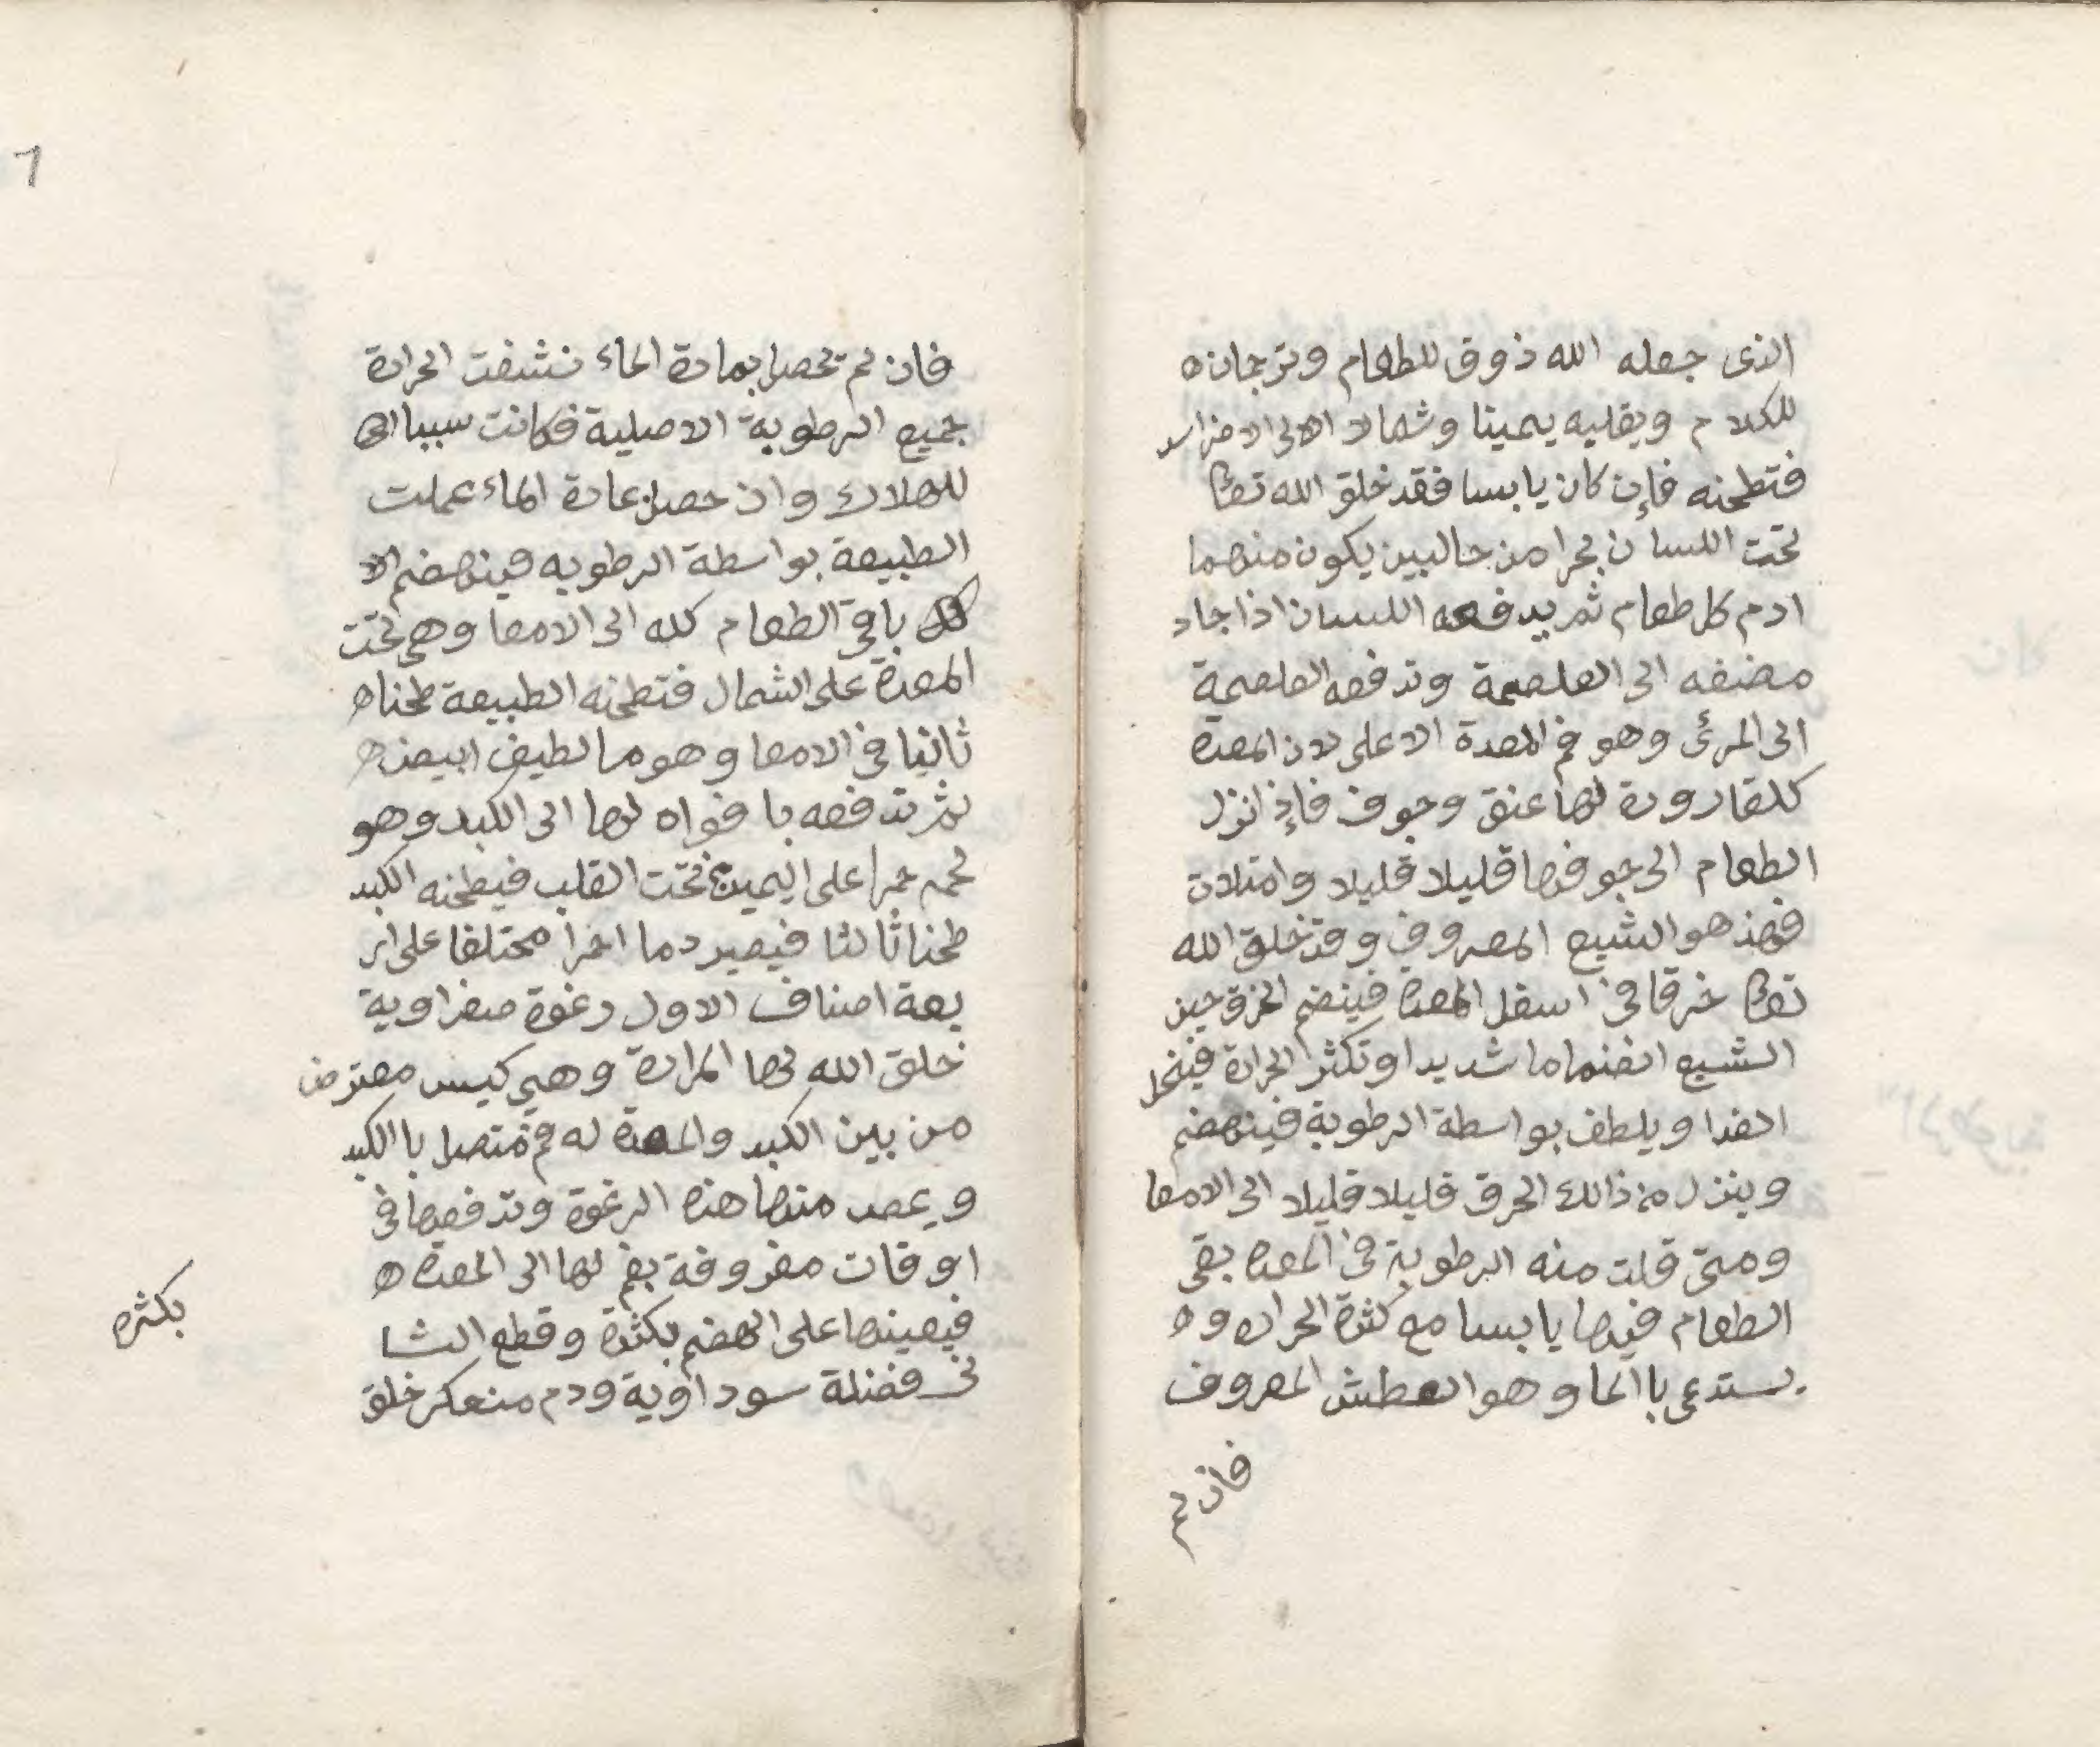 الذى جعله الله ذوق للطعام وترجمانه
للكلام ويقلبه يمينا وشمالا الى الاضراس
فتطحنه فإن كان يابسا فقد خلق الله تعالى
تحت اللسان بحرا من حالبين يكون منهما
ادم كل طعام ثم يدفعه اللسان اذا جاد
مضغه الى الغلصمة وتدفعه الغلصمة
الى المرئ وهو فم المعدة الاعلى لان المعدة
كلقارورة لها عنق وجوف فإذ انزل
الطعام الى جوفها قليلا قليلا وامتلات
فهذ هو الشبع المعروف وقد خلق الله
تعالى خرقا فى اسفل المعدة فينضم الخرق حين
الشبع انضماما شديدا وتكثر الحرارة فينحل
الغذا ويلطف بواسطة الرطوبة فينهضم
وينزل من ذالك الخرق قليلا قليلا الى الامعا
ومتى قلت منه الرطوبة فى المعدة بقى
الطعام فيها يابسا مع كثرة الحراره و
يستدعى با الما وهو العطش المعروف
فان لم
٦
فان لم تحصل بمادة الماء نشفت الحرارة
جميع الرطوبة الاصلية فكانت سببا الى
للهلاك وان حصل عادة الماء عملت
الطبيعة بواسطة الرطوبه فينهضم الا
كل باقى الطعام كله الى الامعا وهى تحت
المعدة على الشمال فتطحنه الطبيعة طحنا
ثانيا فى الامعا وهو ما لطيف ابيض
ثم تدفعه با فواه لها الى الكبد وهو
لحم حمرا على اليمين تحت القلب فيطحنه الكبد
طحنا ثالثا فيصير دما احمرا مختلفا على ار
بعة اصناف الاول رغوة صفراوية
خلق الله لها المرارة وهى كيس معترض
من بين الكبد والمعدة له فم متصل با الكبد
ويمص منها هذه الرغوة وتدفعها فى
اوقات معروفة بفم لها الى المعدة
فيعينها على الهضم بكثرة وقطع الثا
نى فضلة سوداوية ودم منعكر خلق
بكثره